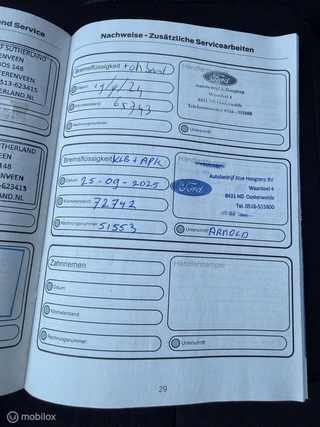 nd Service
SUTHERLAND
ENVEEN
OS 148
ERENVEEN
513-623415
RLAND.NL
THERLAND
VEEN
148
ENVEEN
-623415
AND.NL
Nachweise - Zusätzliche Servicearbeiten
Bremsflüssigkeit
Händlerstempel
Ford
Autobedrijf J. Hoogterp
Waardeel 4
8431 ND Oosterwolde
Telefoonnummer 0516 - 515800
Datum:
Kilometerstand:
65743
Rechnungsnummer:
Unterschrift:
Bremsflüssigkeit KLB + APK
Ford
Autobedrijf Jitze Hoogterp BV
Waardeel 4
8431 ND Oosterwolde
Tel. 0516-515800
Datum: 25-09-2025
Kilometerstand: 72742
Rechnungsnummer: 51553
Unterschrift: ARNOLD
Zahnriemen
Händlerstempel
Datum:
Kilometerstand:
Rechnungsnummer:
Unterschrift:
29
mobilox